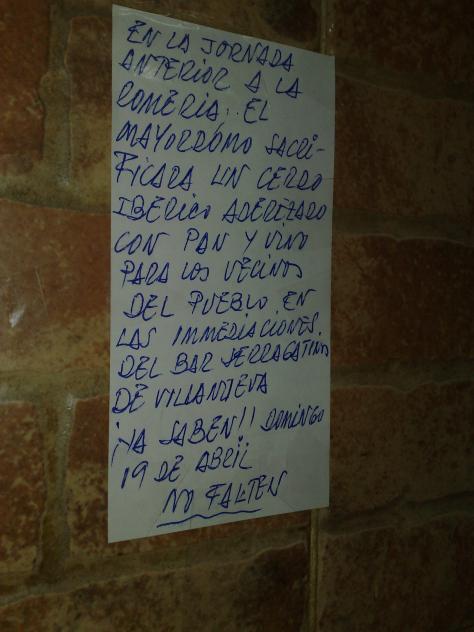 EN LA JORNADA
ANTERIOR A LA
ROMERIA, EL
MAYORDOMO SACRI-
FICARA UN CERDO
IBERICO ADEREZADO
CON PAN Y VINO
PARA LOS VECINOS
DEL PUEBLO EN
LAS INMEDIACIONES
DEL BAR SERRAGATINO
DE VILLANUEVA
¡YA SABEN!! DOMINGO
19 DE ABRIL
NO FALTEN